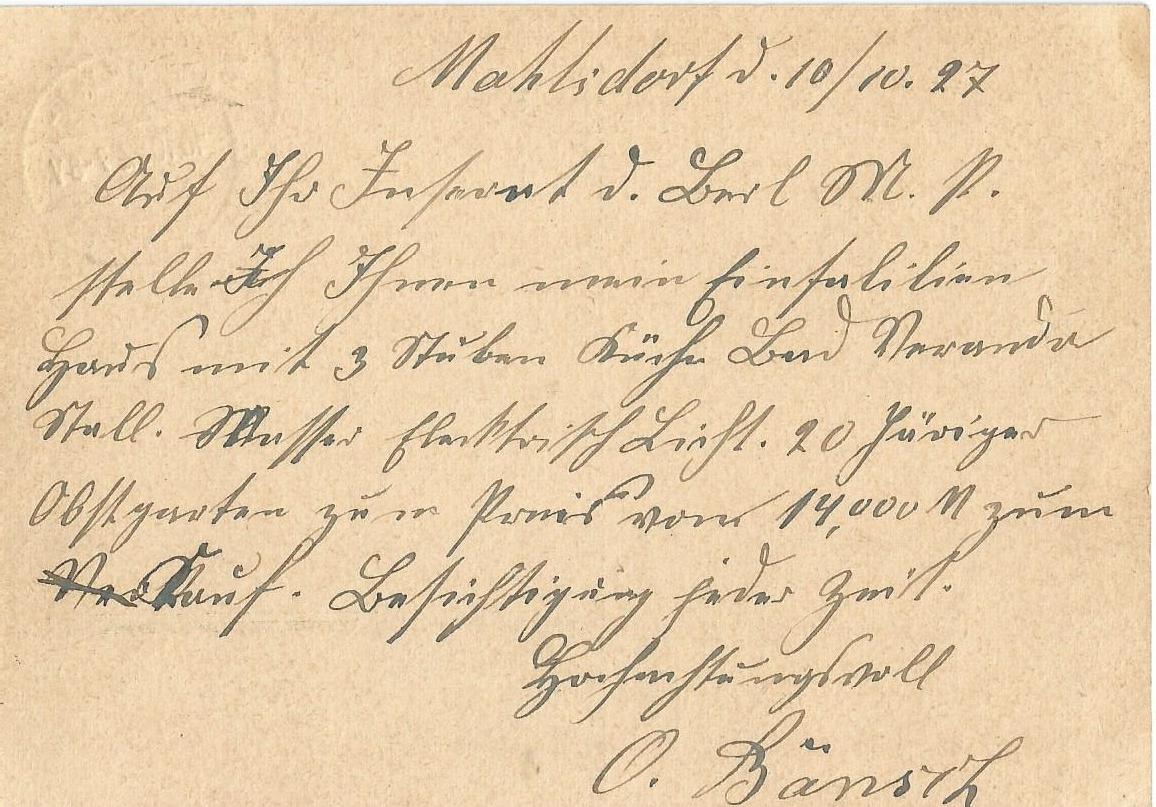 Mahlsdorf d. 10/10. 27
Auf Ihr Inserat d. Berl M. P.
stelle Ich Ihnen mein Einfalilien
Haus mit 3 Stuben Küche Bad Veranda
Stall. Wasser Elecktrisch Licht. 20 Järiger
Obstgarten zum Preis vom 14,000 M zum
Kauf. Besichtigung jeder Zeit.
Hochachtungsvoll
O. Bänsch